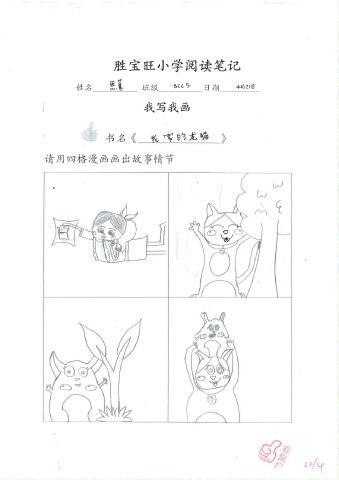 胜宝旺小学阅读笔记
姓名 恩萱 班级 3CC5 日期 4月21日
我写我画
书名《我家的龙猫》
请用四格漫画画出故事情节
22/4